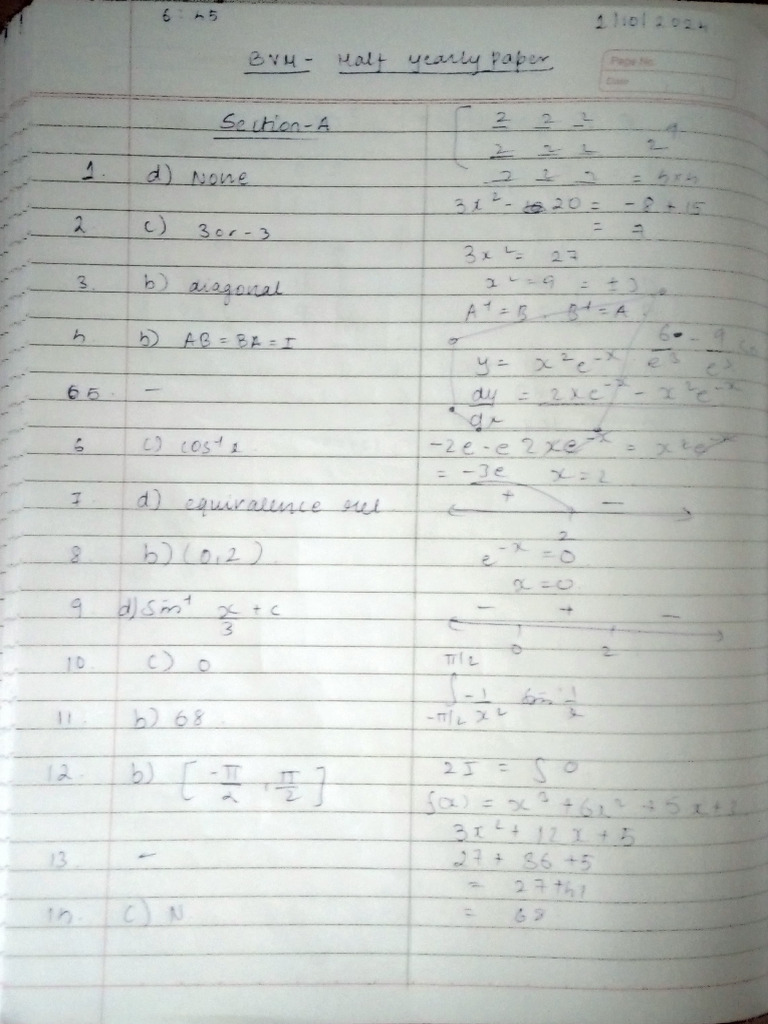 6:45
1/10/2024
BVM - Half yearly paper
Page No.
Date
Section-A
1. d) None
2 c) 3 or -3
3. b) diagonal
4 b) AB = BA = I
5. -
6 c) cos⁻¹x
7 d) equivalence rel
8 b) (0,2)
9 d) Sin⁻¹ x/3 + c
10. c) 0
11. b) 68
12. b) [-π/2, π/2]
13 -
14. c) N
2 2 2
2 2 2 2⁹
2 2 2
3x² - 20 = -8 + 15
= 7
3x² = 27
x² = 9 = ±3
A⁻¹ = B B⁻¹ = A
y = x²e⁻ˣ
dy/dx = 2xe⁻ˣ - x²e⁻ˣ
-2e - e 2xe⁻ˣ = x²e⁻ˣ
= -3e x = 2
+ -
2
e⁻ˣ = 0
x = 0
- + -
0 2
π/2
∫ -1/x² sin⁻¹ 1/x
-π/2
2I = ∫ 0
f(x) = x³ + 6x² + 5x + 3
3x² + 12x + 5
27 + 36 + 5
= 27 + 41
= 68